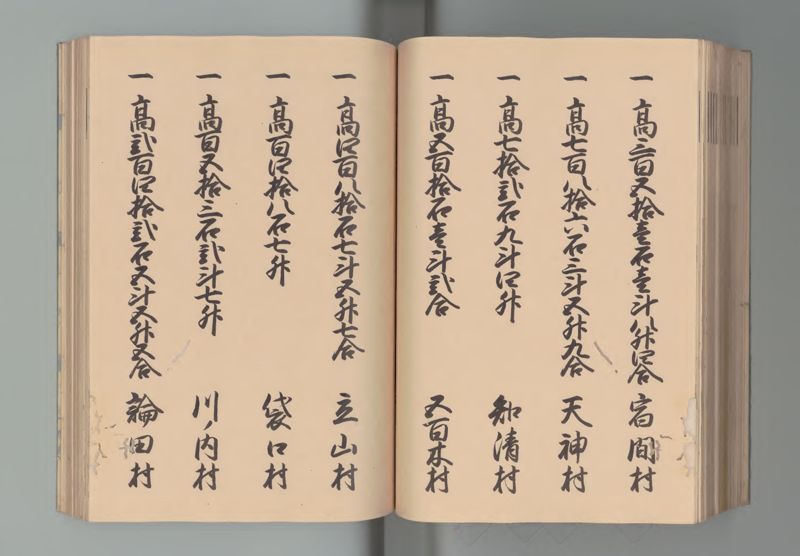 一 高三百五拾壱石壱斗八升四合 宿間村
一 高七百八拾六石三斗五升九合 天神村
一 高七拾弐石九斗四升 知清村
一 高五百拾石壱斗弐合 五百木村
一 高四百八拾石七斗五升七合 立山村
一 高百四拾八石七升 袋口村
一 高百五拾三石弐斗七升 川ノ内村
一 高弐百四拾弐石五斗五升五合 論田村